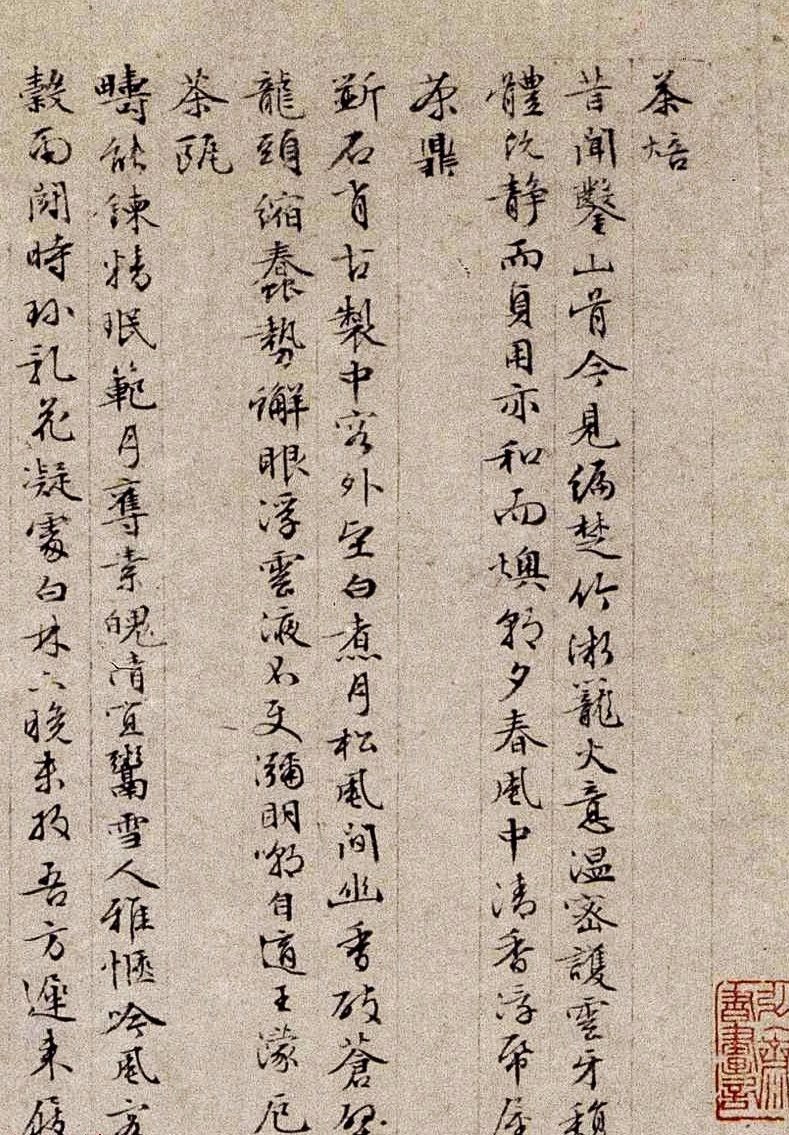 茶焙
昔聞鑿山骨今見編楚竹微籠火意温密護雲牙馥
體既静而貞用亦和而燠朝夕春風中清香浮帋屋
茶鼎
斲石肖古製中容外堅白煮月松風間幽香破蒼壁
龍頭縮蠢勢蠏眼浮雲液不使彌明嘲自適王濛厄
茶甌
疇能鍊精珉範月奪素魄清宜鬻雪人雅愜吟風客
穀雨鬪時珍乳花凝處白林下晚未收吾方遲來屐